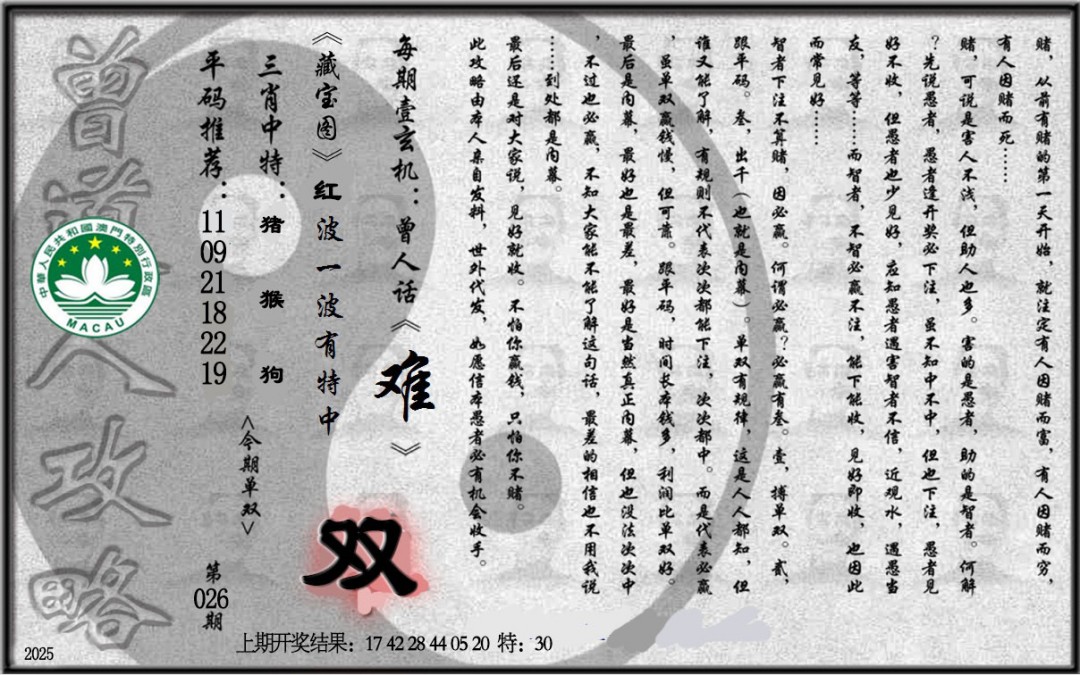 赌，从前有赌的第一天开始，就注定有人因赌而富，有人因赌而穷，
有人因赌而死……
赌，可说是害人不浅，但助人也多。害的是愚者，助的是智者。何解
？先说愚者，愚者逢开奖必下注，虽不知中不中，但也下注，愚者见
好不收，但愚者也少见好，应知愚者遇害智者不信，近观水，遇愚当
友，等等……而智者，不智必赢不注，能下能收，见好即收，也因此
而常见好……
智者下注不算赌，因必赢。何谓必赢？必赢有叁。壹，搏单双。贰，
跟平码。叁，出千（也就是内幕）。单双有规律，这是人人都知，但
谁又能了解，有规则不代表次次都能下注，次次都中。而是代表必赢
，虽单双赢钱慢，但可靠。跟平码，时间长本钱多，利润比单双好。
最后是内幕，最好也是最差，最好是当然真正内幕，但也没法次次中
，不过也必赢，不知大家能不能了解这句话，最差的相信也不用我说
……到处都是内幕。
最后还是对大家说，见好就收。不怕你赢钱，只怕你不赌。
此攻略由本人亲自发料，世外代发，如愿信本愚者必有机会收手。
每期壹玄机：曾人话《难》
《藏宝图》红波一波有特中
双
三肖中特：猪 猴 狗
<今期单双>
平码推荐：11 09 21 18 22 19
第026期
曾道人攻略
中华人民共和國澳門特別行政區
MACAU
上期开奖结果：17 42 28 44 05 20 特：30
2025